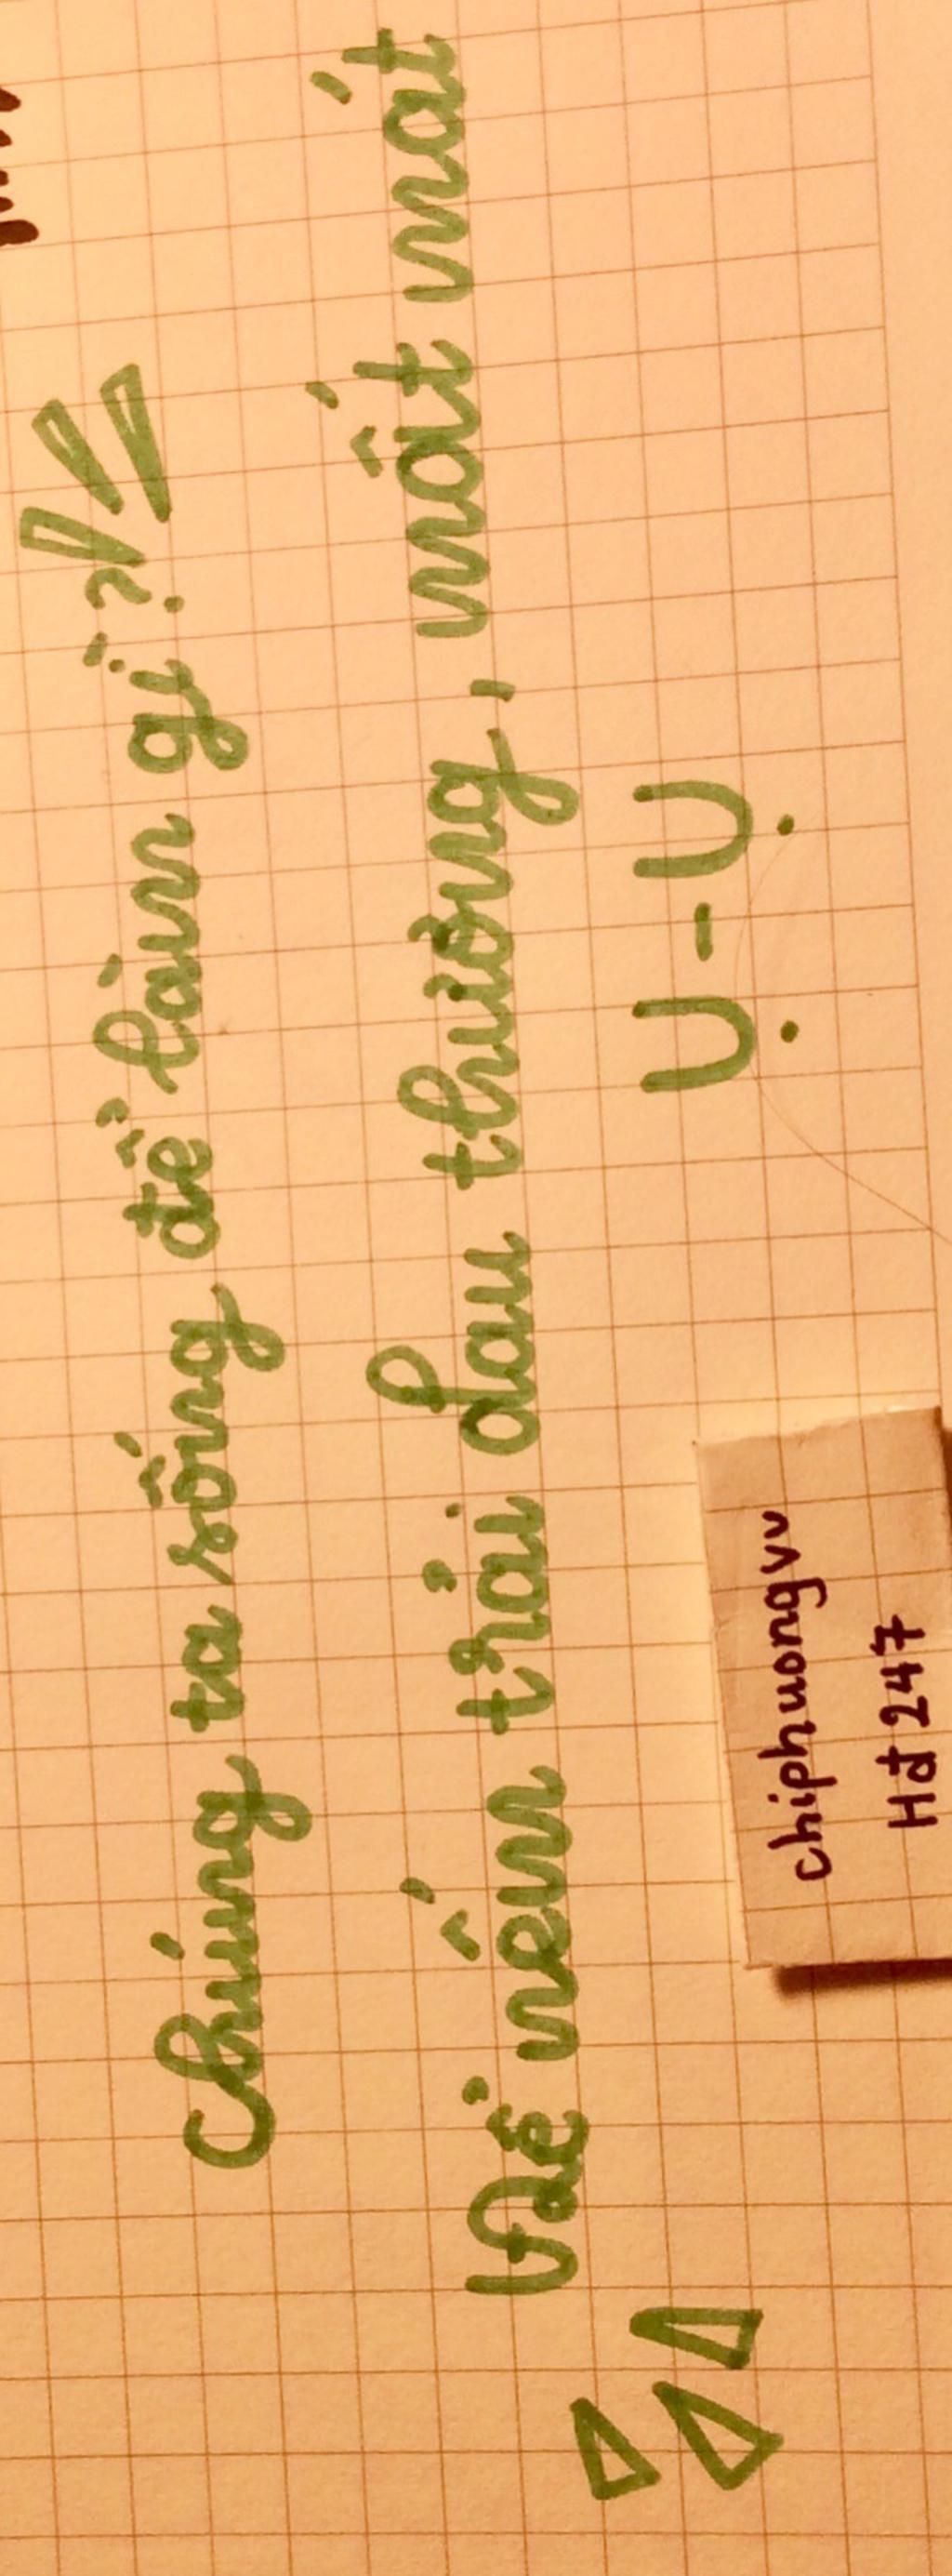 Chúng ta sống để làm gì?
Để nếm trải đau thương, mất mát
Ụ-Ụ
chiphuongvv
Hd 247